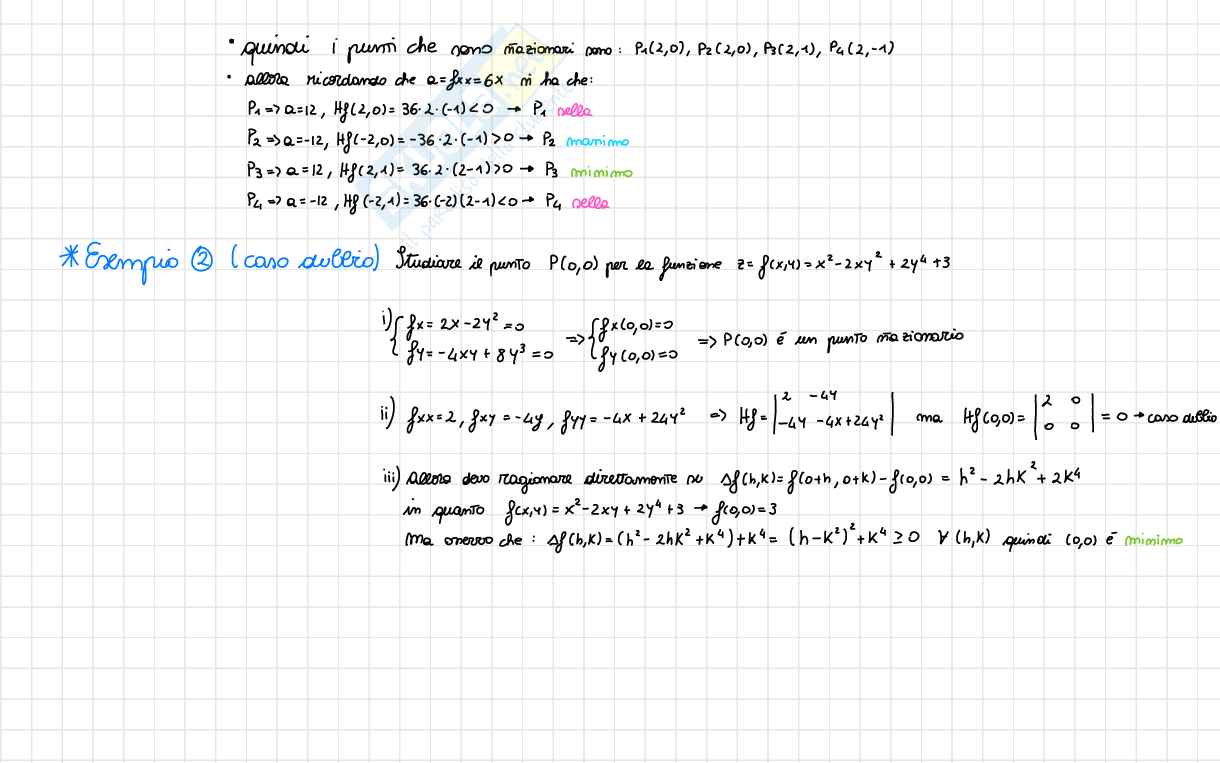 • quindi i punti che sono stazionari sono: P₁(2,0), P₂(2,0), P₃(2,1), P₄(2,-1)
• allora ricordando che a=fxx=6x si ha che:
P₁ => a=12, Hf(2,0)= 36·2·(-1)<0 → P₁ sella
P₂ => a=-12, Hf(-2,0)=-36·2·(-1)>0 → P₂ massimo
P₃ => a=12, Hf(2,1)= 36·2·(2-1)>0 → P₃ minimo
P₄ => a=-12, Hf(-2,1)=36·(-2)(2-1)<0 → P₄ sella
* Esempio ② (caso dubbio) Studiare il punto P(0,0) per la funzione z= f(x,y)=x²-2xy²+2y⁴+3
i) { fx= 2x-2y²=0 => { fx(0,0)=0 => P(0,0) é un punto stazionario
fy=-4xy+8y³=0 fy(0,0)=0
ii) fxx=2, fxy=-4y, fyy=-4x+24y² => Hf= | 2 -4y | ma Hf(0,0)= | 2 0 | =0 → caso dubbio
| -4y -4x+24y² | | 0 0 |
iii) allora devo ragionare direttamente su Δf(h,k)=f(0+h,0+k)-f(0,0) = h²-2hk²+2k⁴
in quanto f(x,y)=x²-2xy+2y⁴+3 → f(0,0)=3
ma osservo che: Δf(h,k)=(h²-2hk²+k⁴)+k⁴= (h-k²)²+k⁴≥0 ∀(h,k) quindi (0,0) é minimo